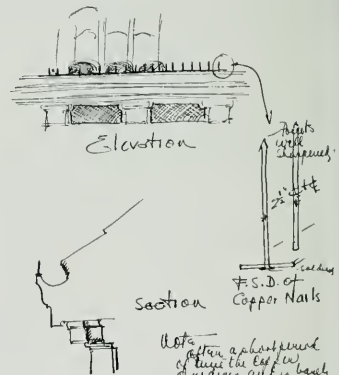 Elevation
Points
well
sharpened.
2½"
soldered
F.S.D. of
Copper Nails
Section
Note
after a short period
of time the